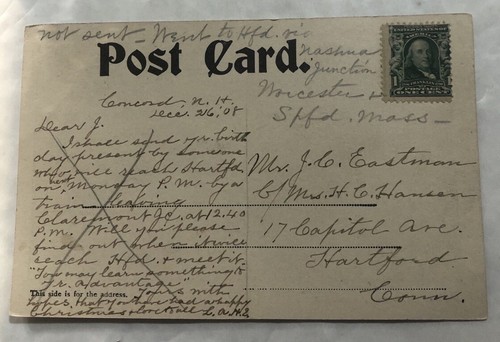 not sent - Went to Hfd. via
Nashua
Junction
Worcester &
Spfd. Mass -
Post Card.
UNITED STATES OF AMERICA
POSTAGE
1 ONE CENT 1
Concord, N. H.
Dec. 26, '08
Dear J.
I shall send yr. birth
day present by someone
who will reach Hartfd.
on next Monday P.M. by a
train leaving
Claremont Jc. at 12.40
P.M. Will you please
find out when it will
reach Hfd. & meet it.
"You may learn something to
yr. advantage".
Yours with
hopes that you have had a happy
Christmas & love to all
Mr. J. C. Eastman
C/o Mrs. H. C. Hansen
17 Capitol Ave.
Hartford
Conn.
This side is for the address.